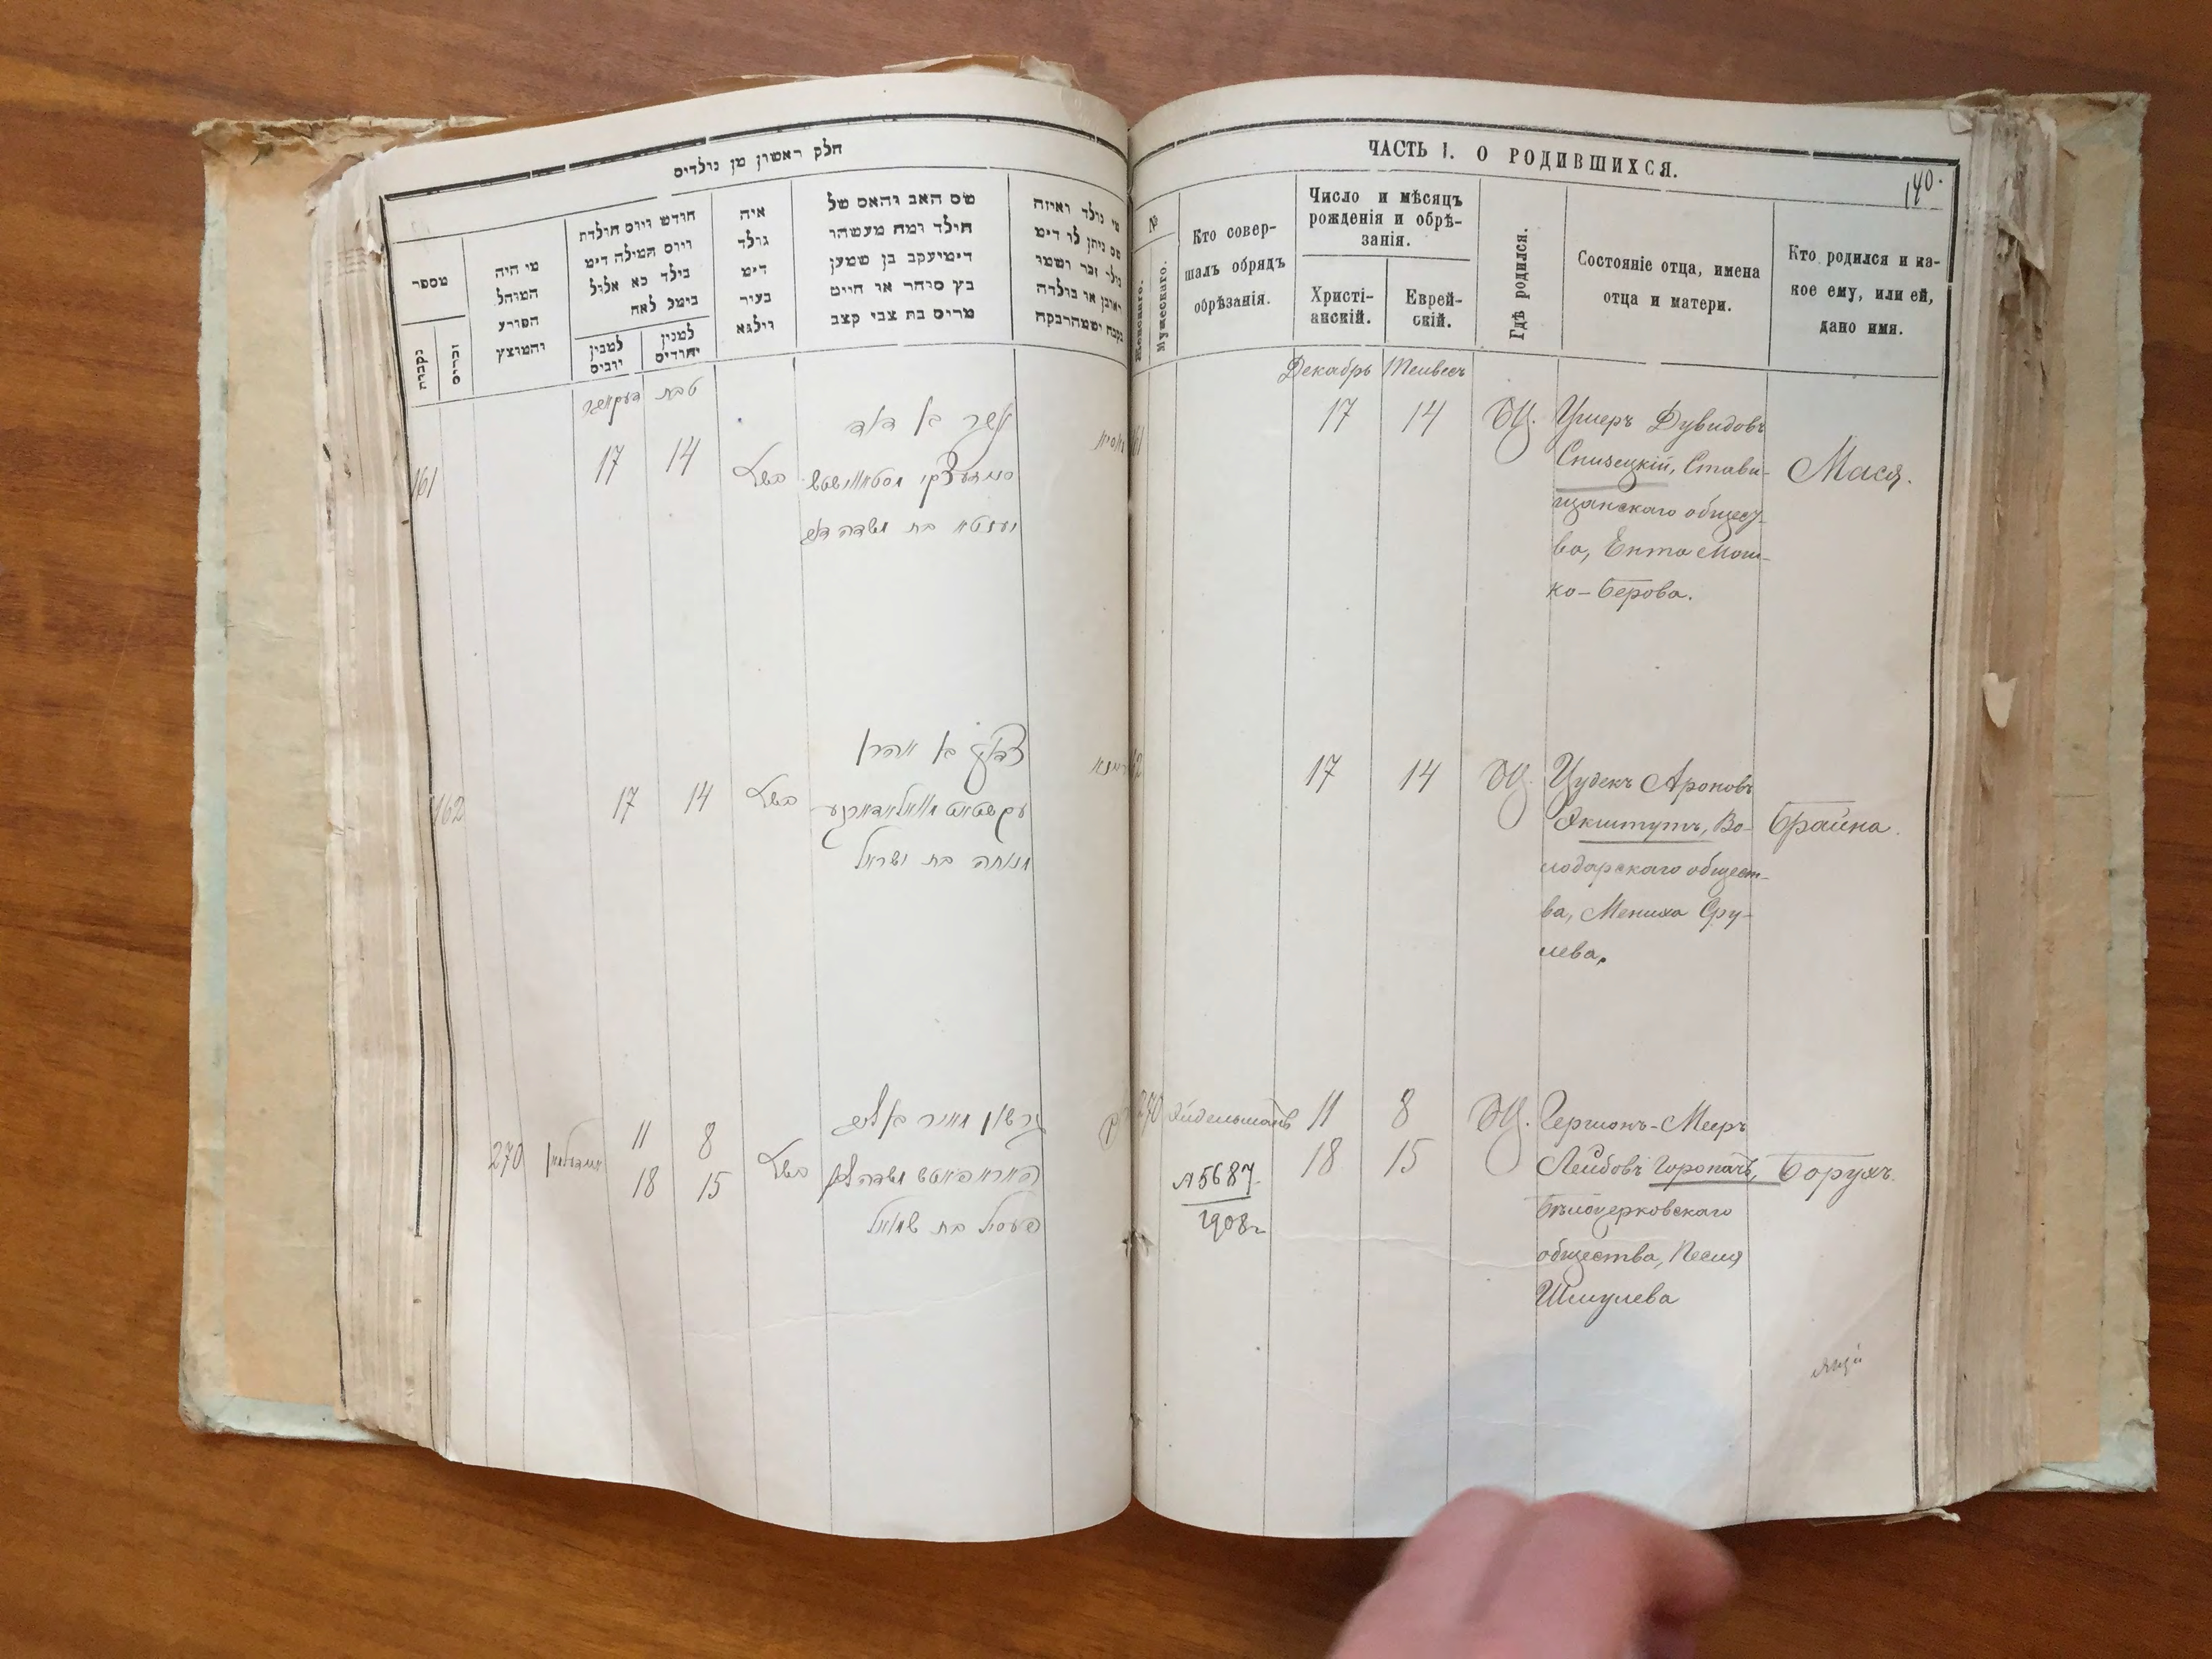 חלק ראשון מן נולדים
מספר
נקבות
זכרים
מי היה
המוהל
הפורע
והמוצץ
חודש ויום הולדת
ויום המילה דימ
בילד כא אלול
בימל לאח
למנין
יונים
למנין
יהודים
איה
נולד
דימ
בעיר
ווילנא
שם האב והאם של
הילד ומה מעשהו
דימיעקב בן שמען
בץ סוחר או חייט
מרים בת צבי קצב
מי נולד ואיזה
שם ניתן לו דימ
טבת
161
17
14
אשר בן דוד
בת משה דוב
162
17
14
בן אהרן
מנוחה בת ישראל
270
11
8
18
15
גרשון מאיר בן ליב
פעסיל בת שמואל
ЧАСТЬ I. О РОДИВШИХСЯ.
140.
№
Женскаго.
Мужескаго.
Кто совер-
шалъ обрядъ
обрѣзанія.
Число и мѣсяцъ
рожденія и обрѣ-
занія.
Христі-
анскій.
Еврей-
скій.
Гдѣ родился.
Состояніе отца, имена
отца и матери.
Кто родился и ка-
кое ему, или ей,
дано имя.
Декабрь Тейвесъ
17 14 БЦ. Ушеръ Дувидовъ
Спизецкій, Стави-
щанскаго общест-
ва, Ента Мош-
ко-Берова.
Мася.
17 14 БЦ. Цудекъ Ароновъ
Экштутъ, Во-
лодарскаго общест-
ва, Мениха Сру-
лева.
Брайна.
270 Эйдельманъ 11 8 БЦ. Гершонъ-Мееръ
18 15 Лейбовъ Горопачъ,
Бѣлоцерковскаго
общества, Песля
Шмулева
Борухъ.
А5687
1908г